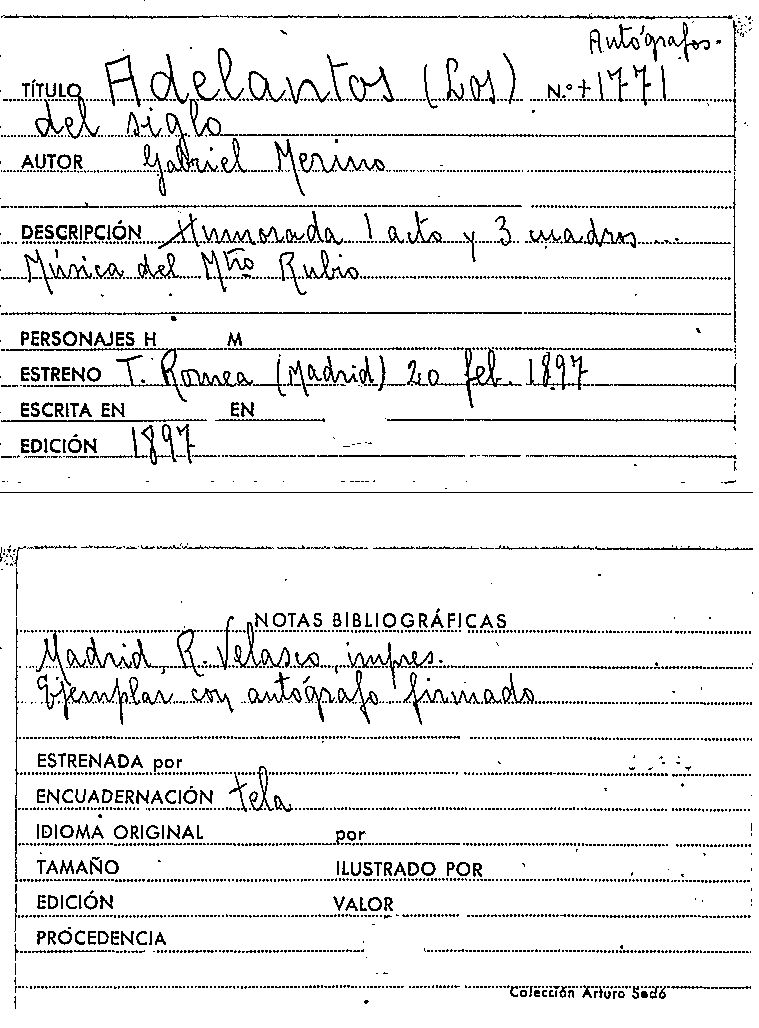 Autógrafos.
TÍTULO Adelantos (Los) N.º +1771
del siglo
AUTOR Gabriel Merino
DESCRIPCIÓN Humorada 1 acto y 3 cuadros ...
Música del Mtro Rubio
PERSONAJES H M
ESTRENO T. Romea (Madrid) 20 feb. 1897
ESCRITA EN EN
EDICIÓN 1897
NOTAS BIBLIOGRÁFICAS
Madrid, R. Velasco, impres.
Ejemplar con autógrafo firmado
ESTRENADA por
ENCUADERNACIÓN tela
IDIOMA ORIGINAL por
TAMAÑO ILUSTRADO POR
EDICIÓN VALOR
PROCEDENCIA
Colección Arturo Sedó